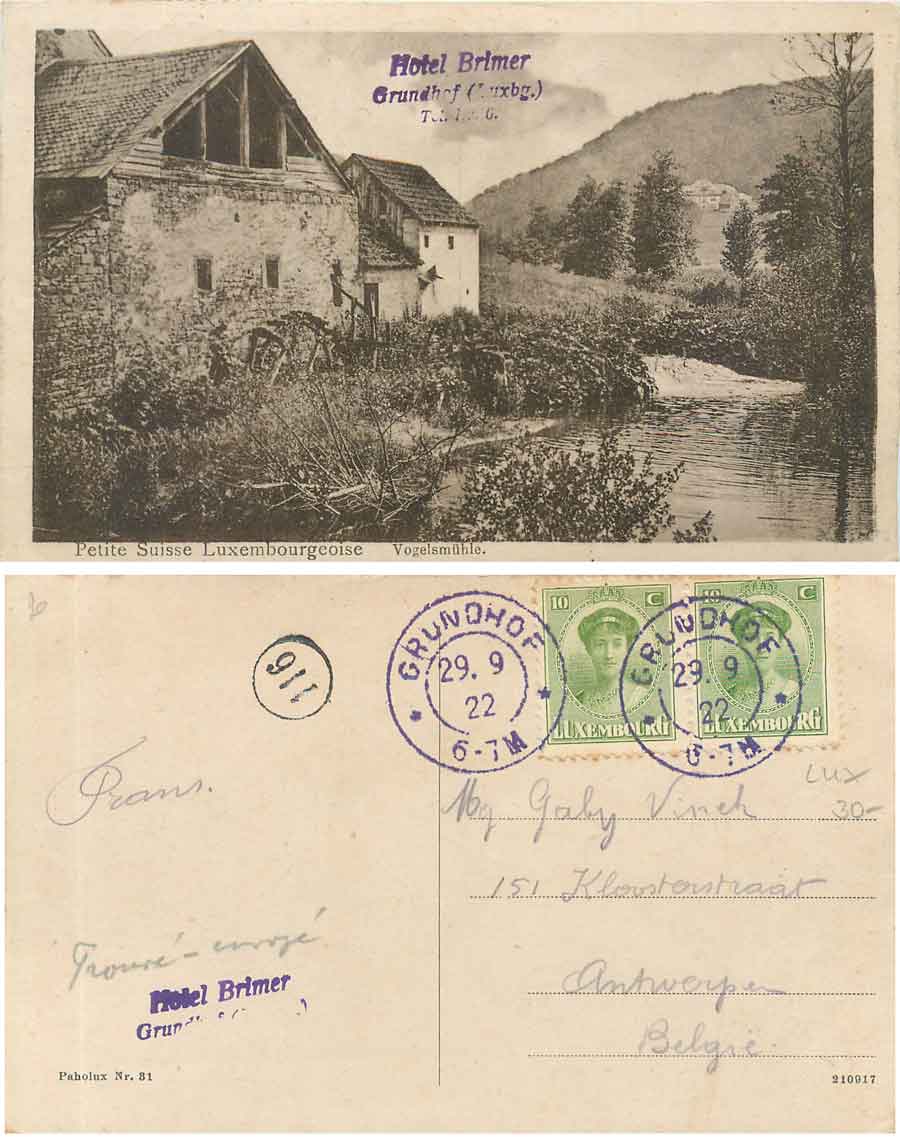 Hotel Brimer
Grundhof (Luxbg.)
Tel.
Petite Suisse Luxembourgeoise Vogelsmühle.
GRUNDHOF
29. 9
22
6-7M
GRUNDHOF
29. 9
22
6-7M
10 C
LUXEMBOURG
10 C
LUXEMBOURG
116
Frans.
LUX
30-
Gaby Vinck
151 Kloosterstraat
Antwerpen
België.
Trouvé - envoyé
Hotel Brimer
Grundhof
Paholux Nr. 31
210917